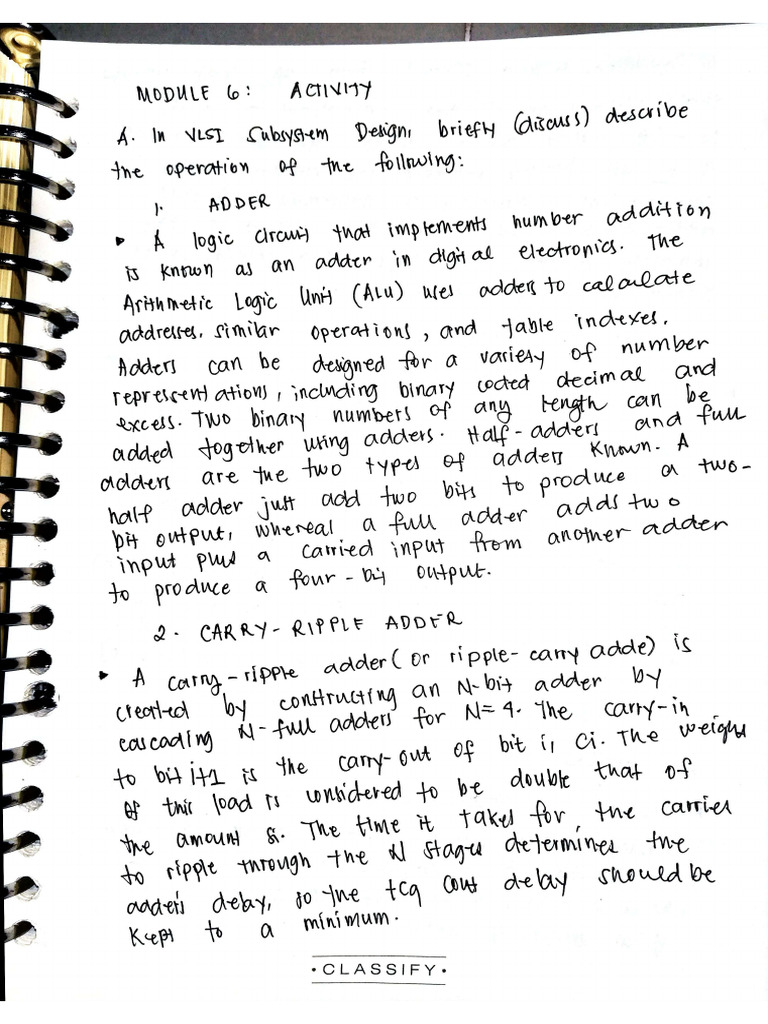 MODULE 6: ACTIVITY
A. In VLSI Subsystem Design, briefly (discuss) describe
the operation of the following:
1. ADDER
A logic circuit that implements number addition
is known as an adder in digital electronics. The
Arithmetic Logic Unit (ALU) uses adders to calculate
addresses, similar operations, and table indexes.
Adders can be designed for a variesy of number
representations, including binary coded decimal and
excess. Two binary numbers of any length can be
added together using adders. Half-adders and full
adders are the two types of adders known. A
half adder just add two bits to produce a two-
bit output, whereas a full adder adds two
input plus a carried input from another adder
to produce a four-bit output.
2. CARRY-RIPPLE ADDER
A carry-ripple adder (or ripple-carry adde) is
created by constructing an N-bit adder by
cascading N-full adders for N=4. The carry-in
to bit i+1 is the carry-out of bit i, Ci. The weight
of this load is considered to be double that of
the amount Si. The time it takes for the carries
to ripple through the N stages determines the
adder's delay, so the tcq cout delay should be
kept to a minimum.
• CLASSIFY •